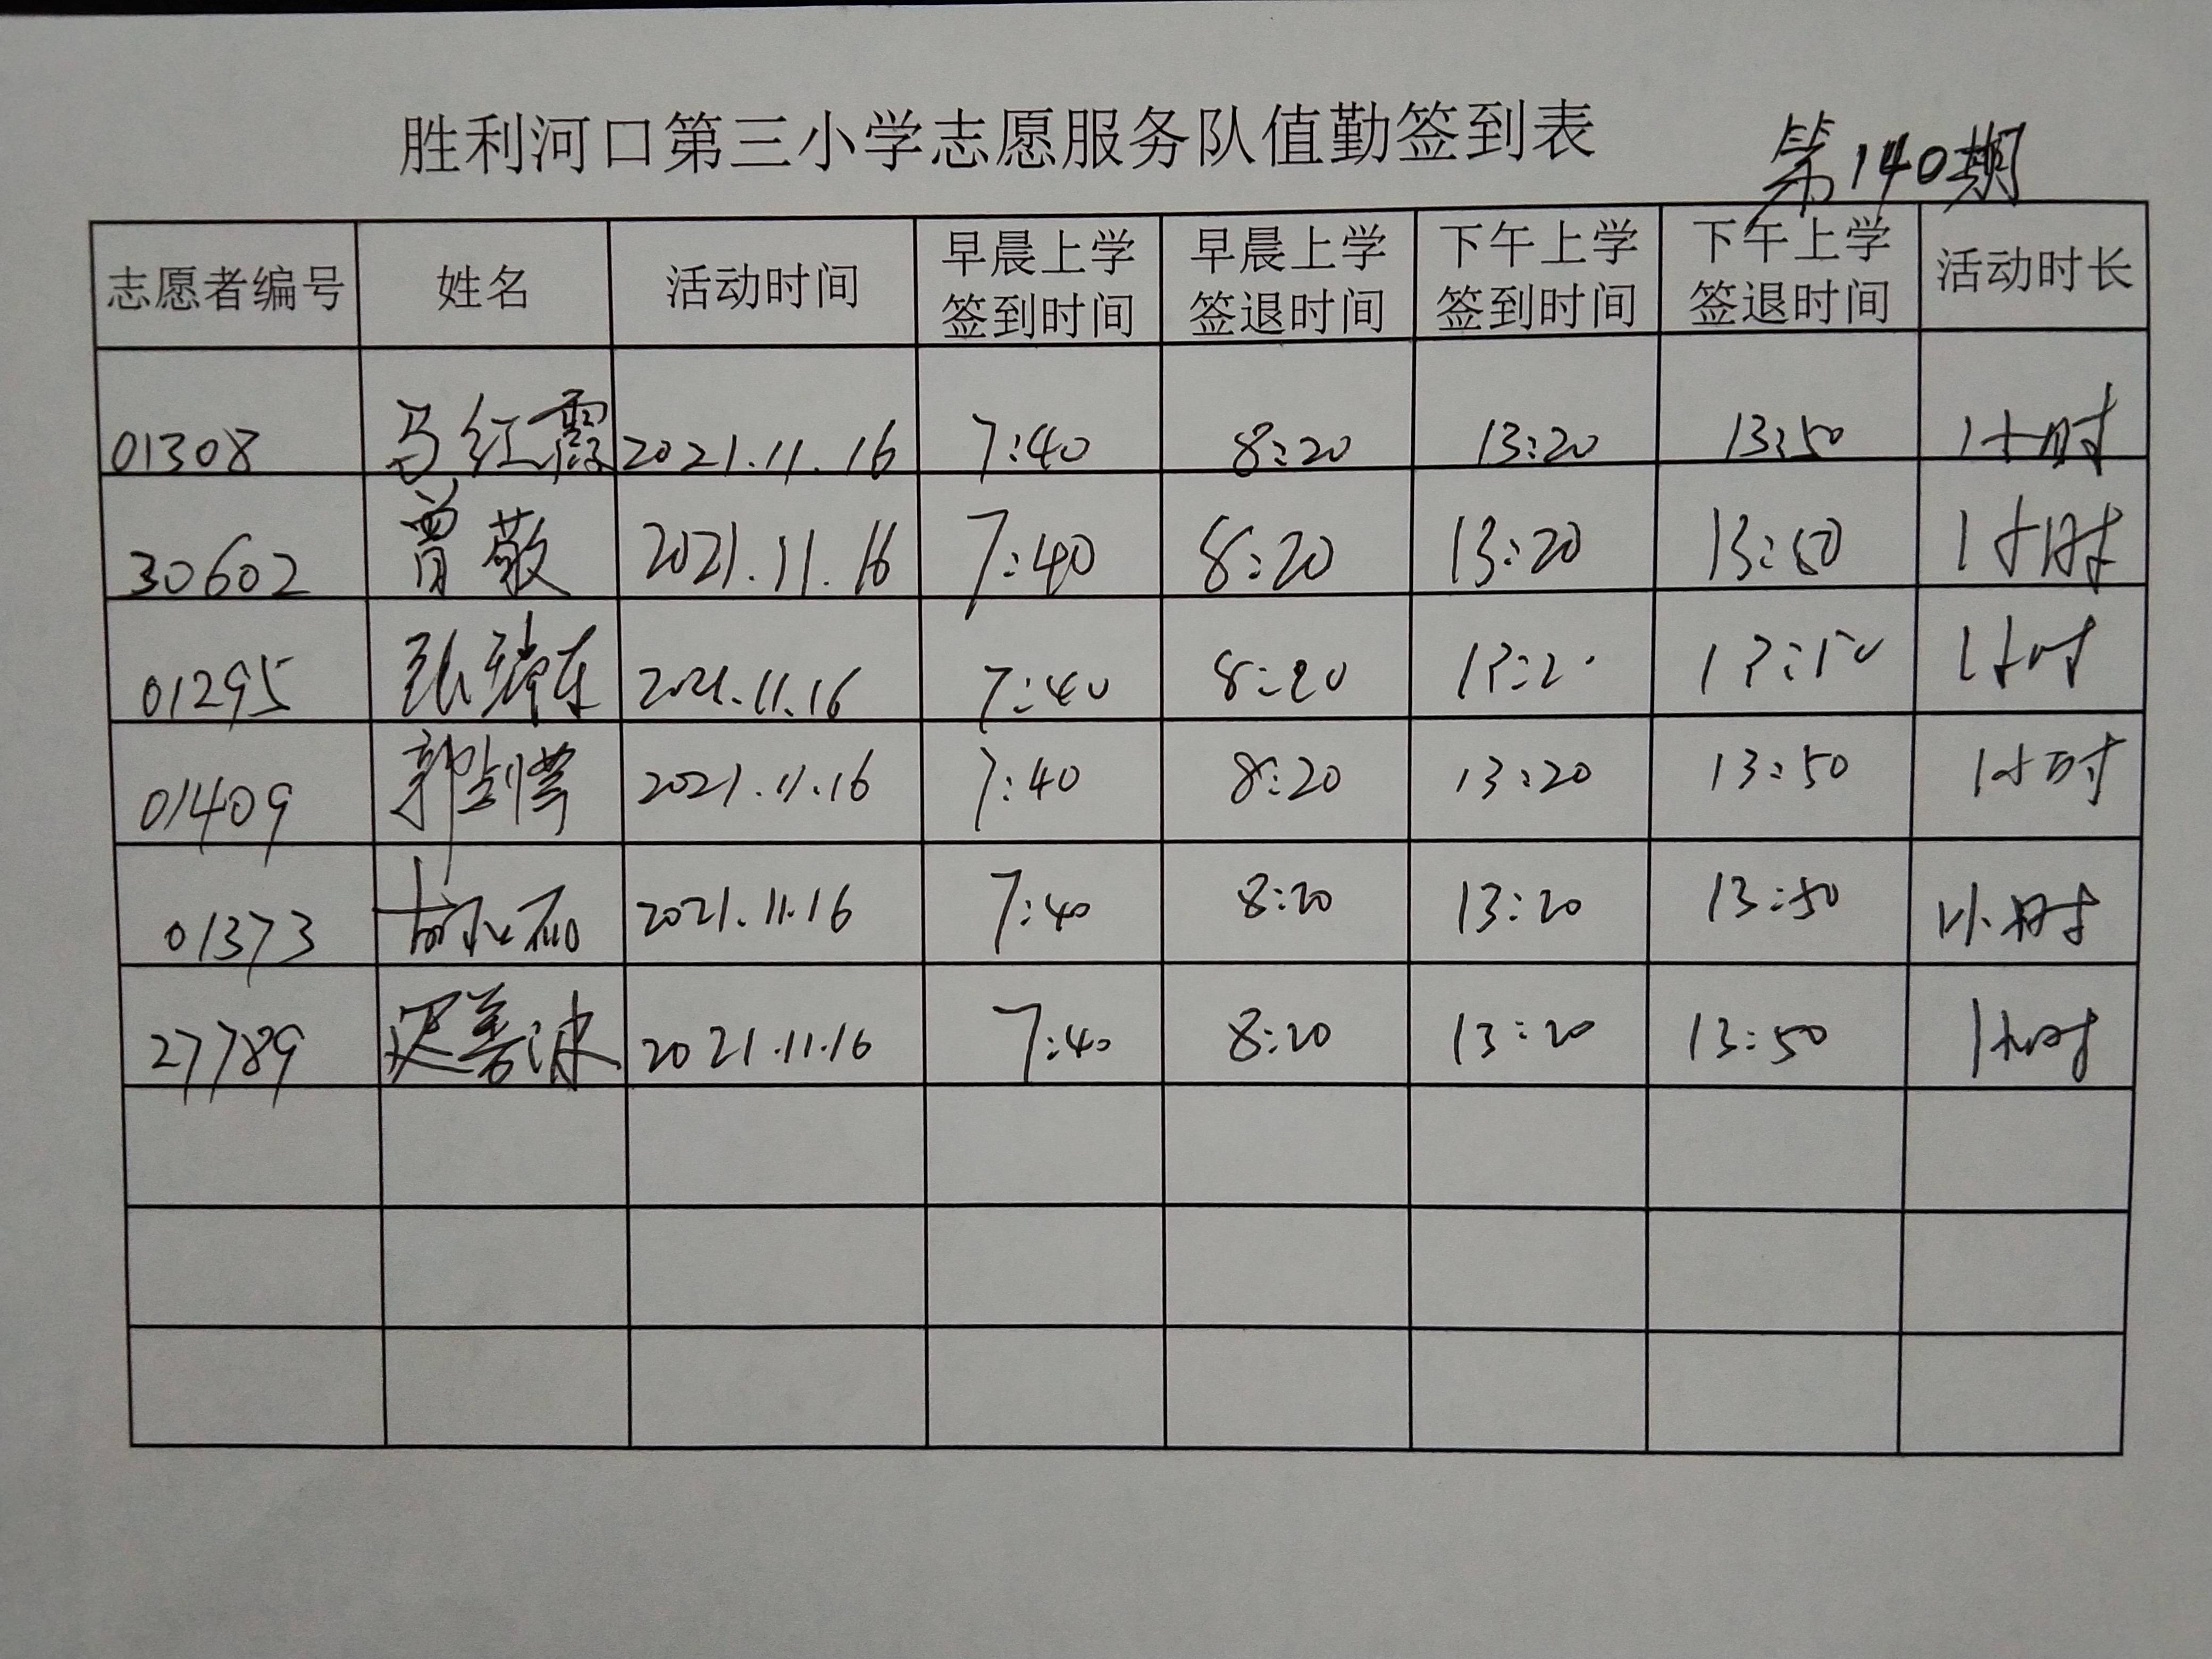 胜利河口第三小学志愿服务队值勤签到表
第140期
志愿者编号 姓名 活动时间 早晨上学签到时间 早晨上学签退时间 下午上学签到时间 下午上学签退时间 活动时长
01308 马红霞 2021.11.16 7:40 8:20 13:20 13:50 1小时
30602 曾敬 2021.11.16 7:40 8:20 13:20 13:50 1小时
01295 张瑞东 2021.11.16 7:40 8:20 13:20 13:50 1小时
01409 郭剑 2021.11.16 7:40 8:20 13:20 13:50 1小时
01373 2021.11.16 7:40 8:20 13:20 13:50 1小时
27789 迟善波 2021.11.16 7:40 8:20 13:20 13:50 1小时